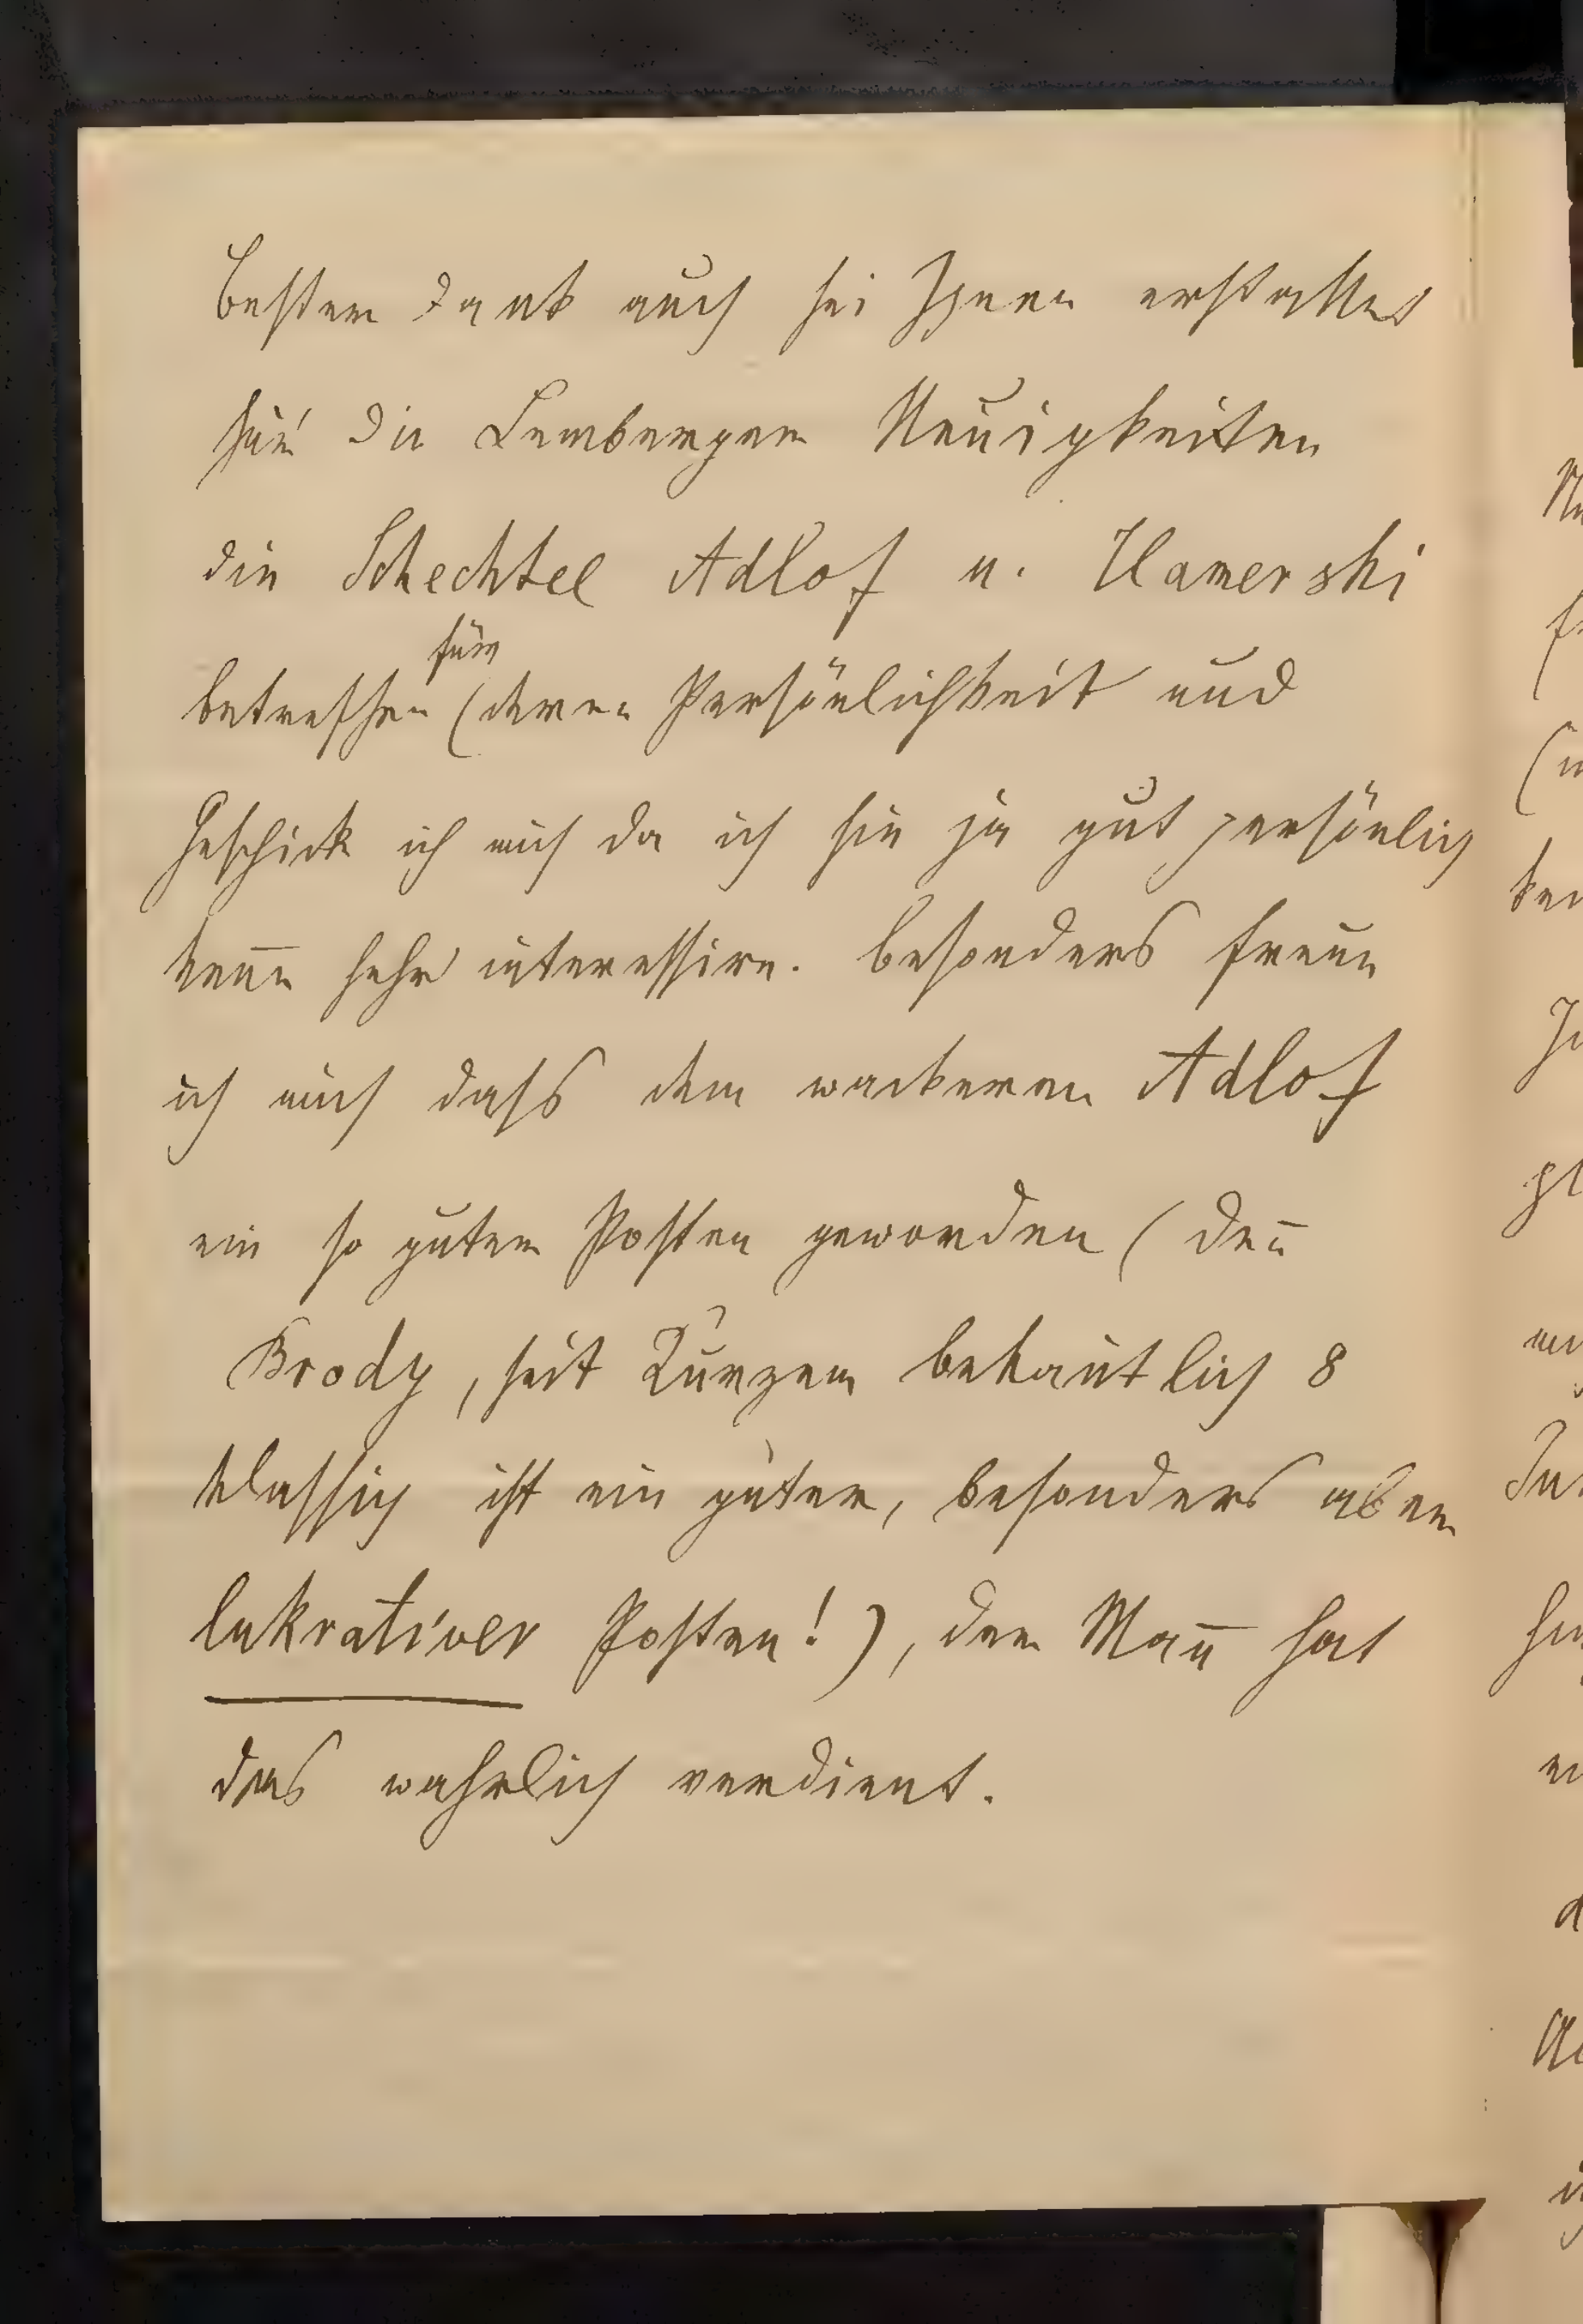 Bester Dank auch sei Ihnen erstattet
für die Lemberger Neuigkeiten
die Schechtel Adlof u. Hamerski
betreffen (deren Persönlichkeit und
für
Geschick ich mich da ich sie ja gut persönlich
keñe sehr interessire. Besonders freue
ich mich dass dem wackeren Adlof
ein so guter Posten geworden (deñ
Brody, seit Kurzem bekantlich 8
klassig ist ein guter, besonders aber
lukrativer Posten!), der Mañ hat
das wahrlich verdient.